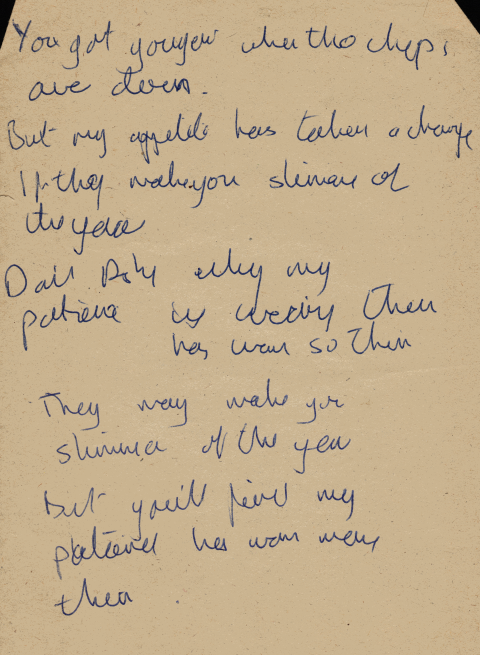 You got younger when the chips
are down.
But my appetite has taken a change
If they make you slimmer of
the year
Don't Ask why my
patience is wearing thin
has worn so thin
They may make you
slimmer of the year
But you'll find my
patience has worn very
thin